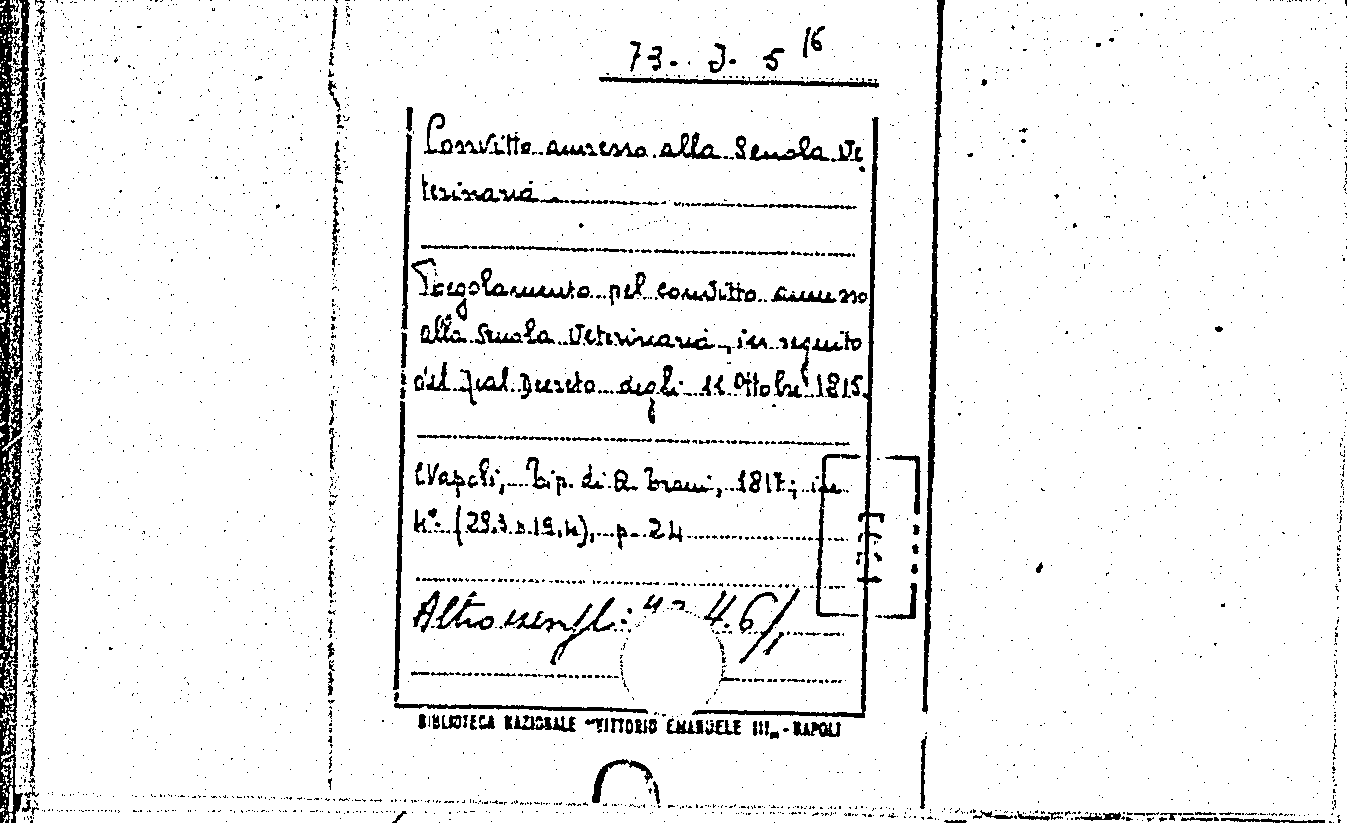 73. J. 5 16
Convitto annesso alla Scuola Ve
terinaria
Regolamento pel convitto annesso
alla Scuola Veterinaria, in seguito
del Real Decreto degli 11 Ottobre 1815.
Napoli, Tip. di A. Trani, 1817; in
4º (29.3 x 19.4), p. 24
Altro esempl: 4.6/
BIBLIOTECA NAZIONALE "VITTORIO EMANUELE III„ - NAPOLI